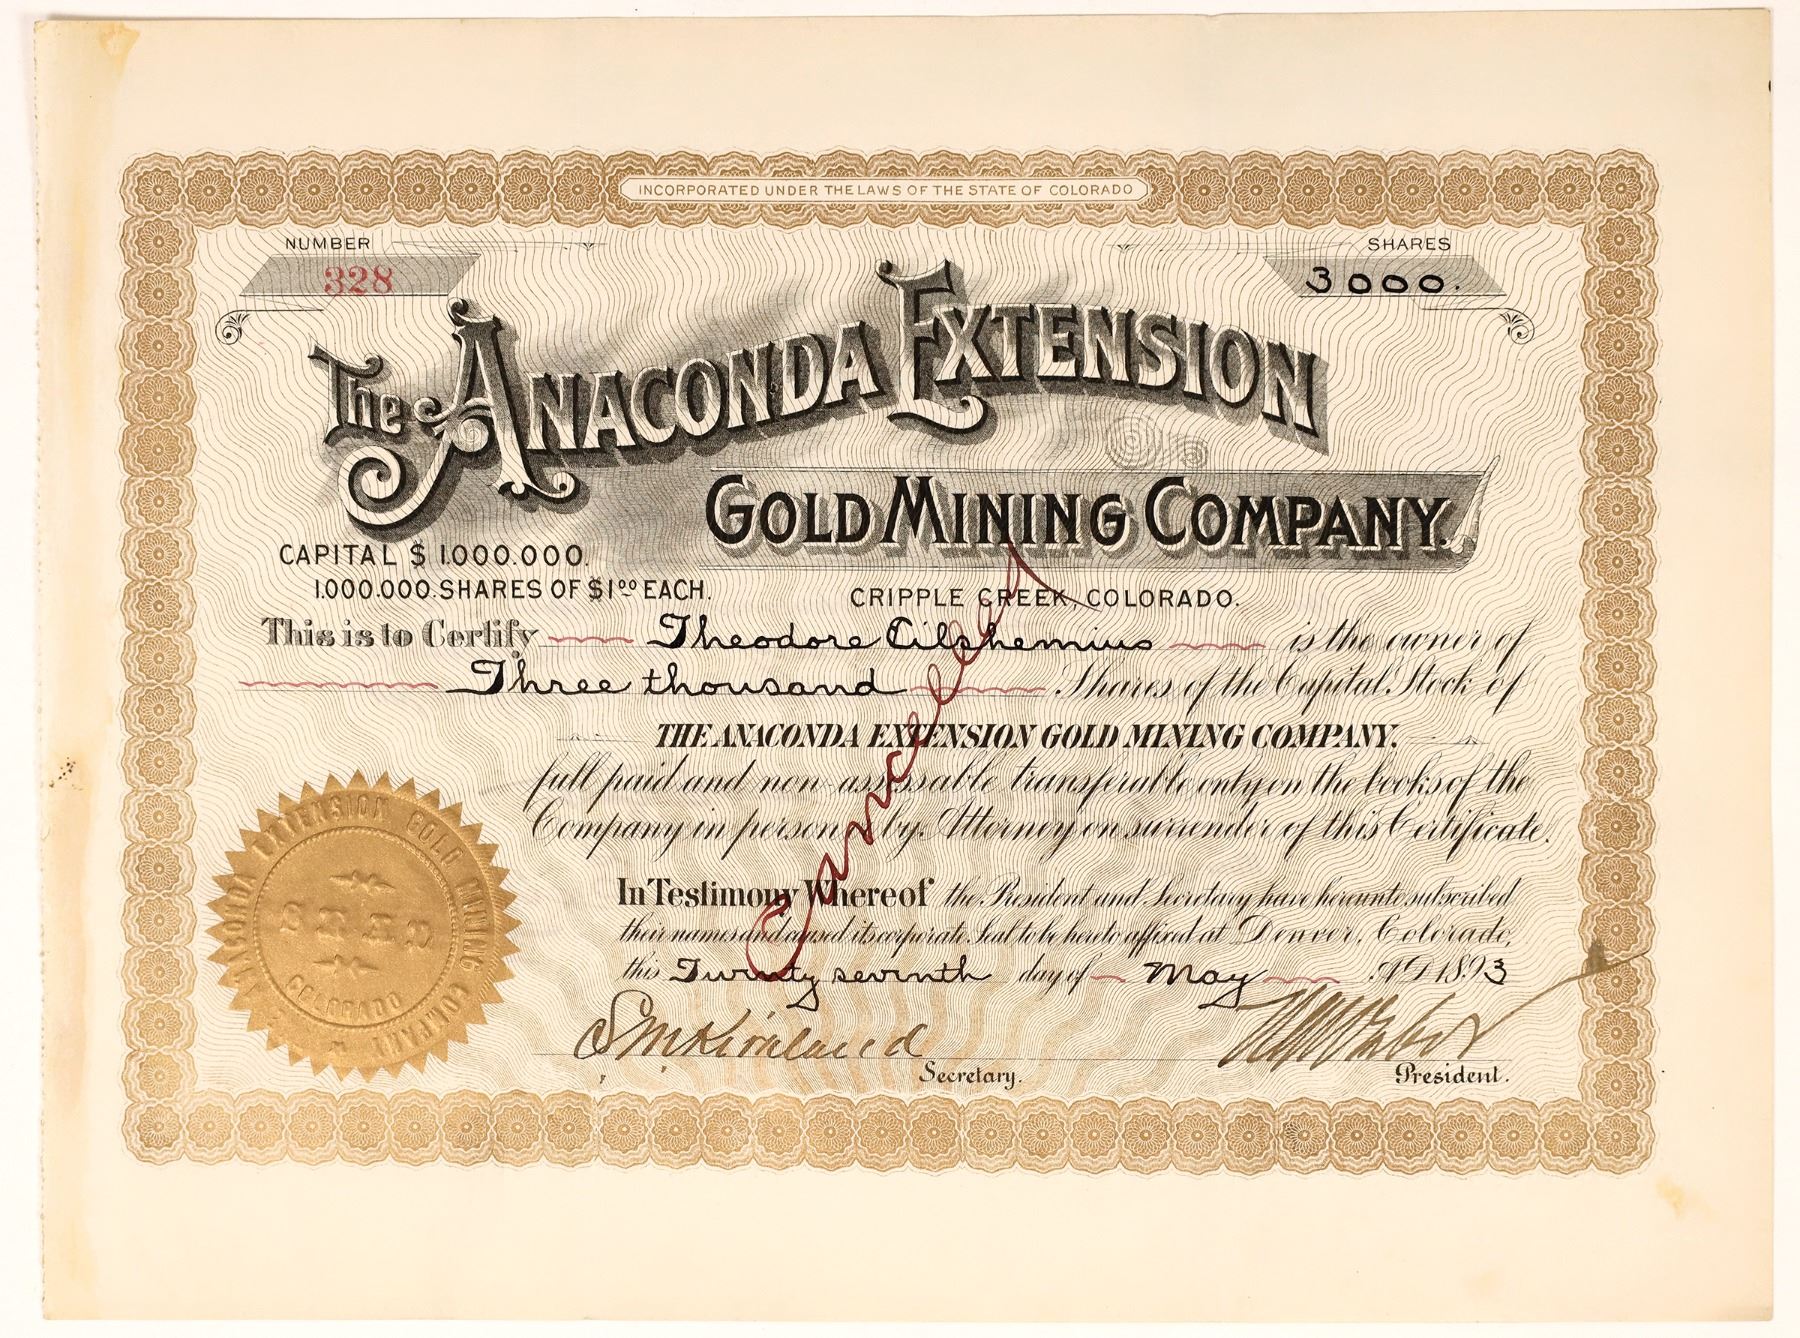 INCORPORATED UNDER THE LAWS OF THE STATE OF COLORADO
NUMBER
328
SHARES
3000.
The Anaconda Extension
Gold Mining Company.
CAPITAL $ 1.000.000.
1.000.000. SHARES OF $1.00 EACH.
CRIPPLE CREEK, COLORADO.
This is to Certify Theodore Eilshemius is the owner of
Three thousand Shares of the Capital Stock of
THE ANACONDA EXTENSION GOLD MINING COMPANY.
full paid and non-assessable transferable only on the books of the
Company in person or by Attorney on surrender of this Certificate.
In Testimony Whereof the President and Secretary have hereunto subscribed
their names and caused its corporate Seal to be hereto affixed at Denver, Colorado,
this Twenty seventh day of May A.D. 1893
Cancelled
ANACONDA EXTENSION GOLD MINING COMPANY
SEAL
COLORADO
S M Kirkland
Secretary.
President.